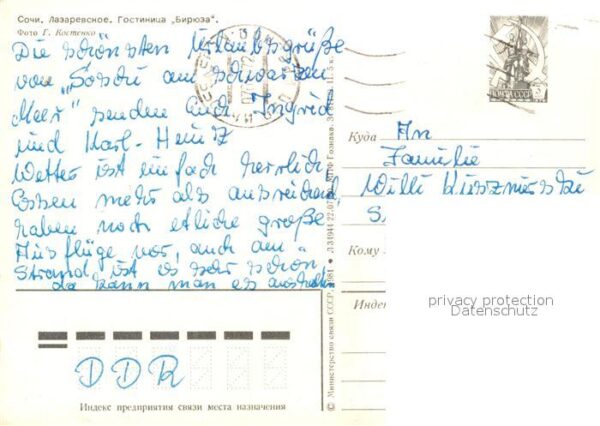 Сочи. Лазаревское. Гостиница „Бирюза".
Фото Г. Костенко
Die schönsten Urlaubsgrüße
von „Sotschi am schwarzen
Meer" senden Euch Ingrid
und Karl-Heinz
Wetter ist einfach herrlich,
Essen mehr als ausreichend,
haben noch etliche große
Ausflüge vor, auch am
Strand ist es sehr schön
da kann man es aushalten
Куда An
Familie
Willi
Кому
Индекс
privacy protection
Datenschutz
DDR
Индекс предприятия связи места назначения
© Министерство связи СССР. 1981